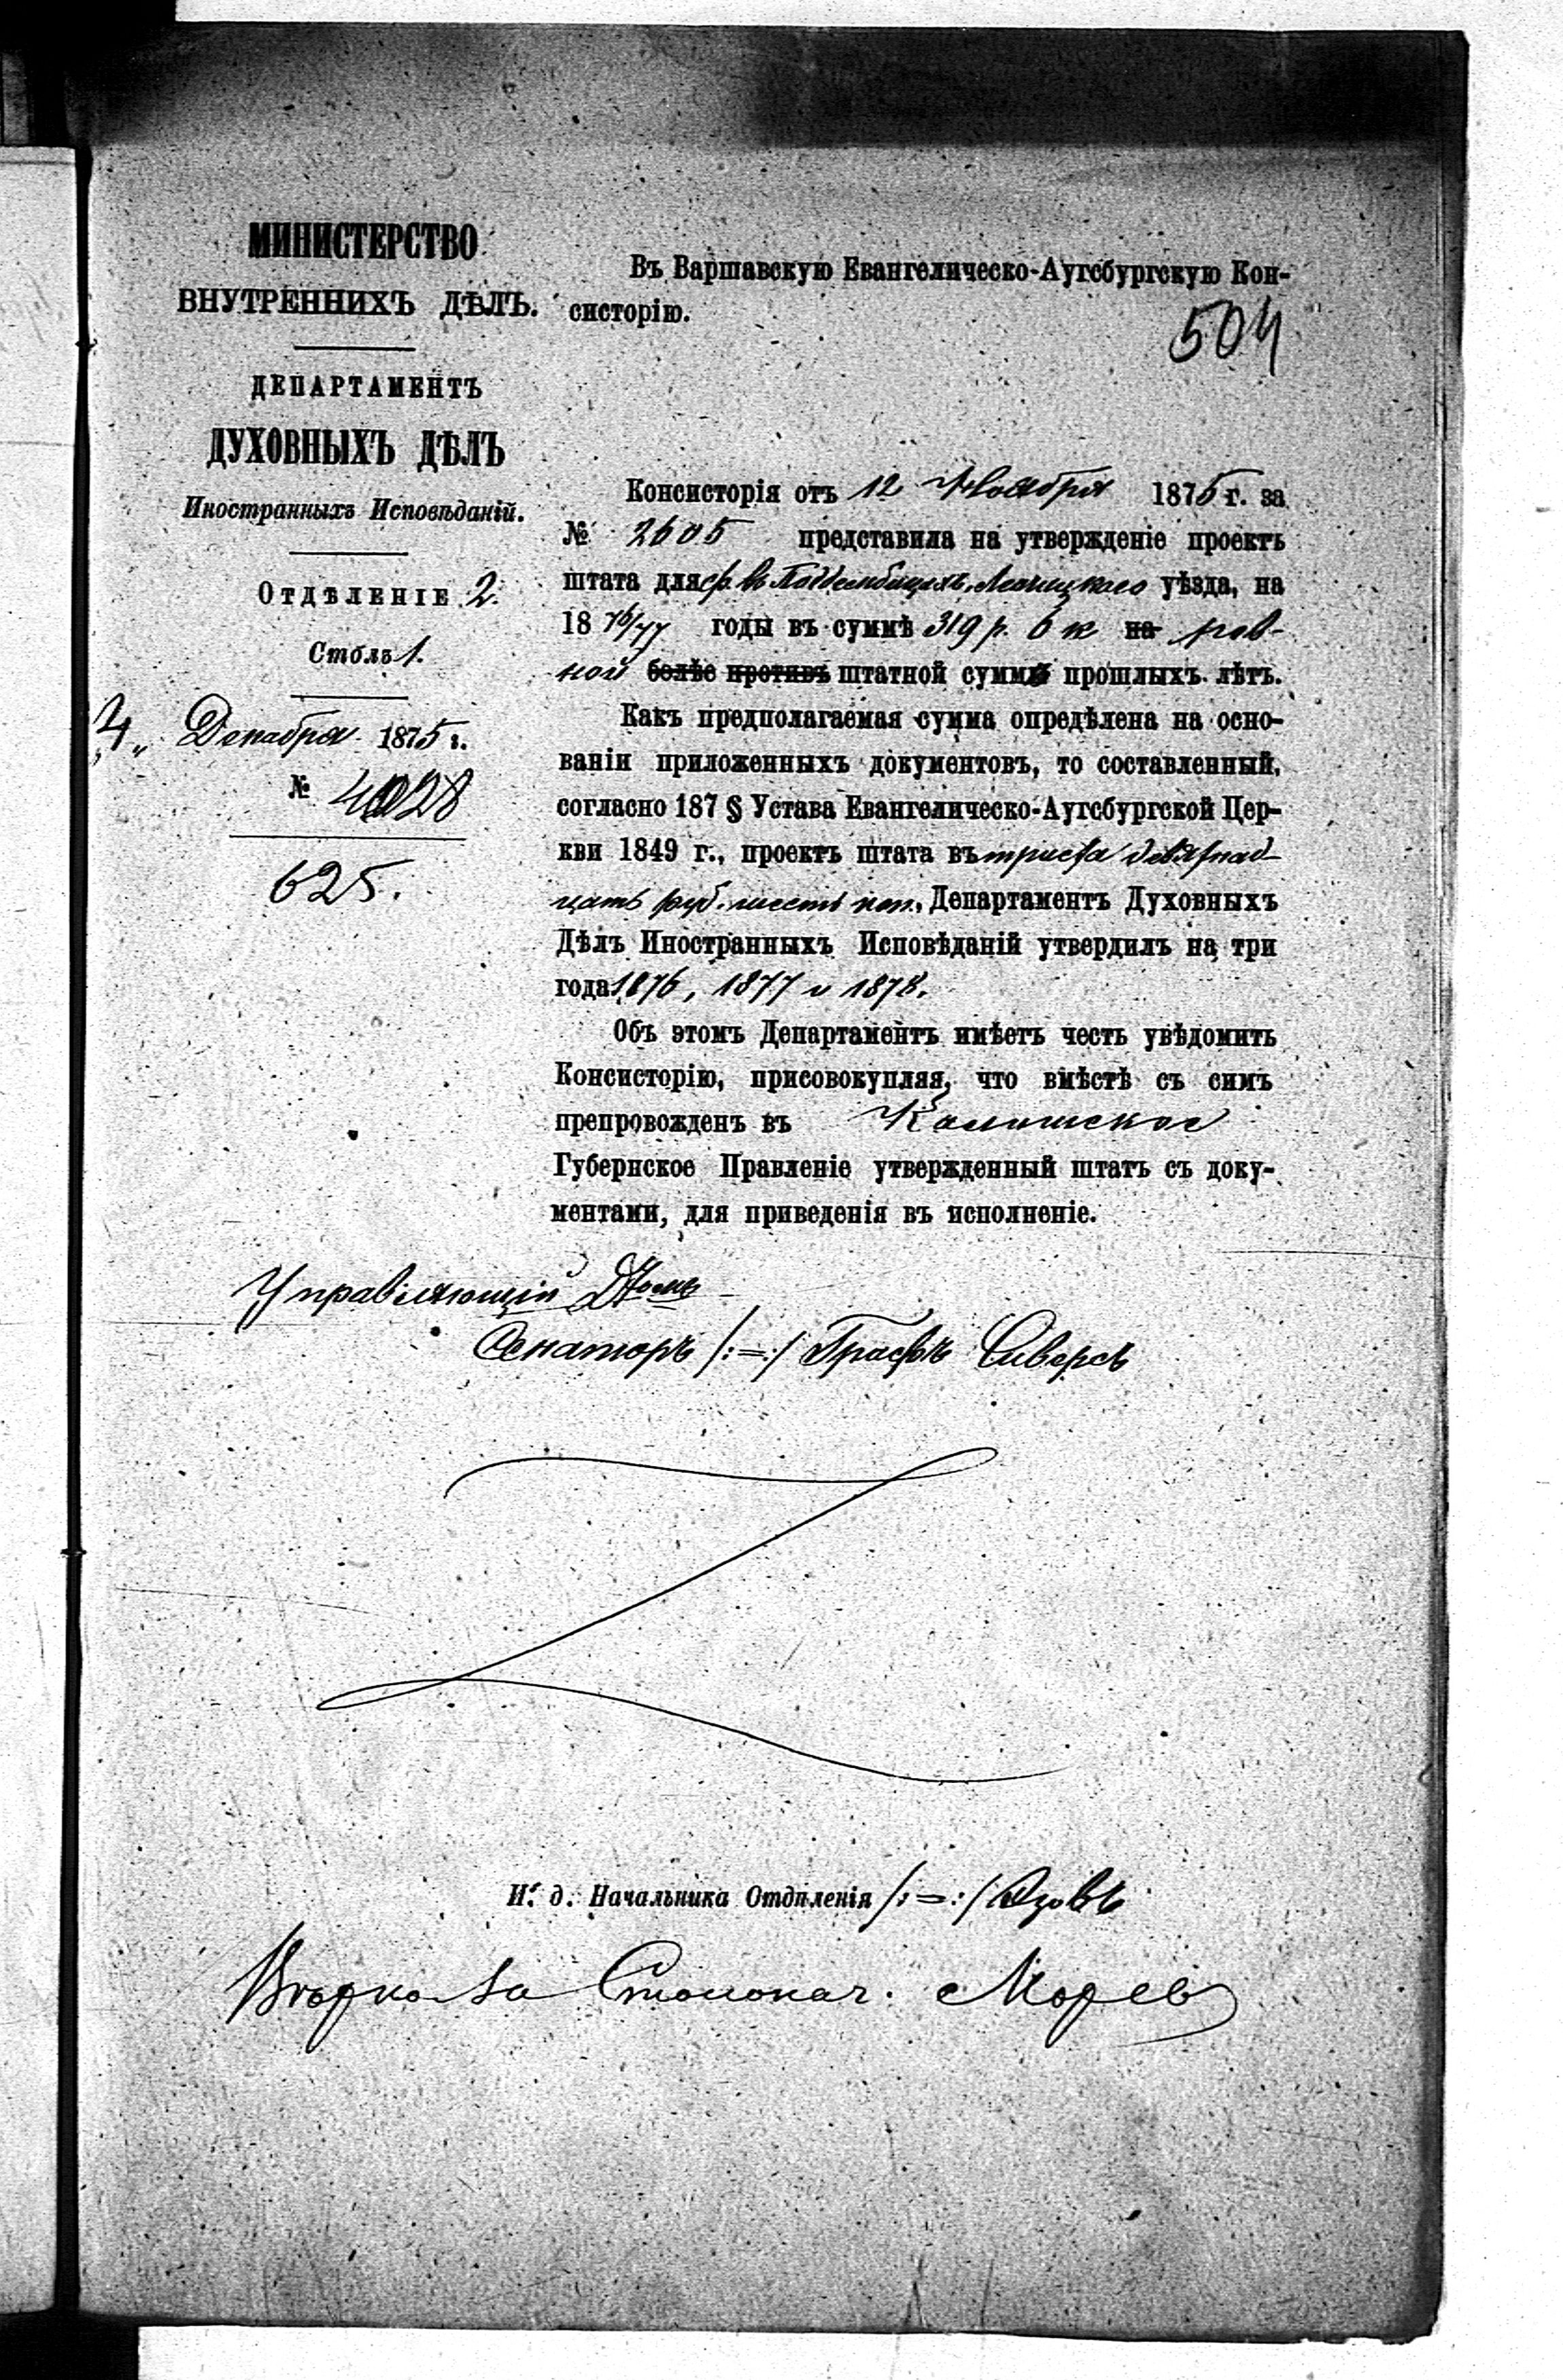 МИНИСТЕРСТВО
ВНУТРЕННИХЪ ДѢЛЪ.
ДЕПАРТАМЕНТЪ
ДУХОВНЫХЪ ДѢЛЪ
Иностранныхъ Исповѣданій.
ОТДѢЛЕНІЕ 2.
Столъ 1.
„4„ Декабря 1875 г.
№ 4028
625.
Въ Варшавскую Евангелическо-Аугсбургскую Кон-
систорію.
504
Консисторія отъ 12 Ноября 1875 г. за
№ 2605 представила на утвержденіе проектъ
штата для ф. въ Поддембицахъ, уѣзда, на
18 76/77 годы въ суммѣ 319 р. 6 к на рав-
ной болѣе противъ штатной суммѣ прошлыхъ лѣтъ.
Какъ предполагаемая сумма опредѣлена на осно-
ваніи приложенныхъ документовъ, то составленный,
согласно 187 § Устава Евангелическо-Аугсбургской Цер-
кви 1849 г., проектъ штата въ триста девятнад-
цать руб. шесть коп., Департаментъ Духовныхъ
Дѣлъ Иностранныхъ Исповѣданій утвердилъ на три
года 1876, 1877 и 1878.
Объ этомъ Департаментъ имѣетъ честь увѣдомить
Консисторію, присовокупляя, что вмѣстѣ съ симъ
препровожденъ въ Калишское
Губернское Правленіе утвержденный штатъ съ доку-
ментами, для приведенія въ исполненіе.
Управляющій Д-томъ
Сенаторъ /:=:/ Графъ Сиверсъ
И. д. Начальника Отдѣленія /:=:/ Азовъ
Вѣрно За Столонач. Морев